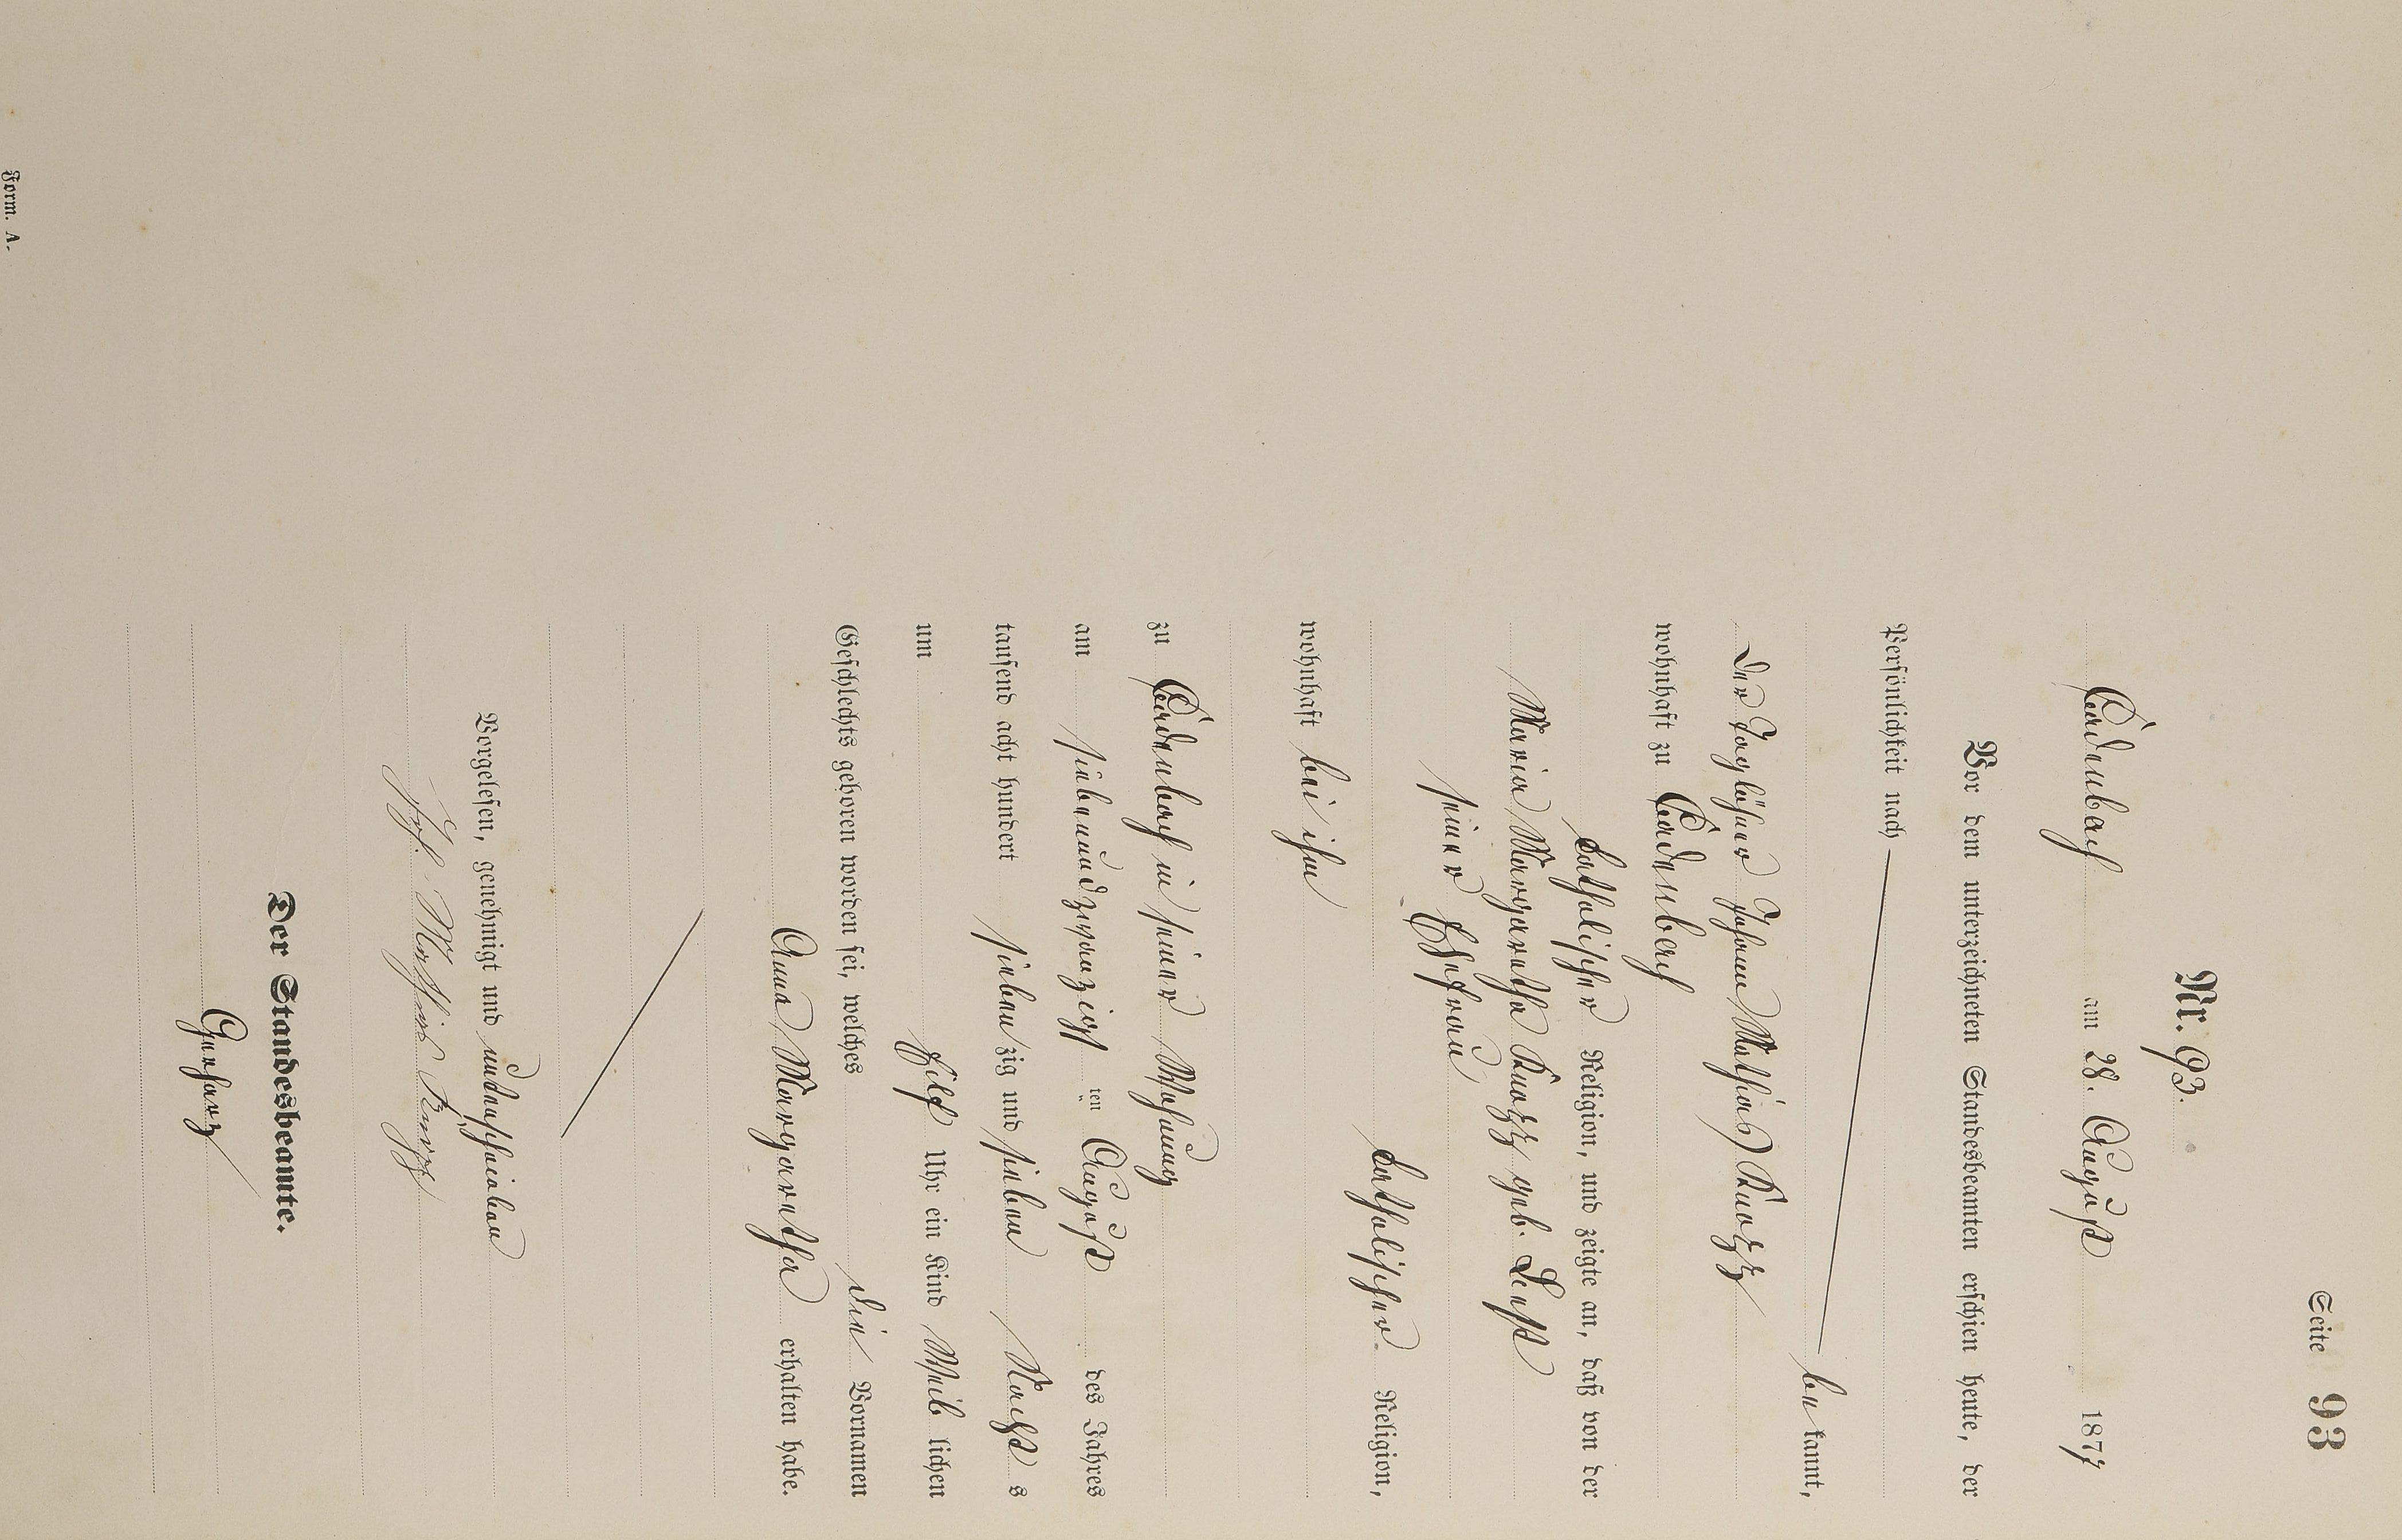 Seite 93
Nr. 93.
Cadenbach am 28. August 1877
Vor dem unterzeichneten Standesbeamten erschien heute, der
Persönlichkeit nach
bekannt,
der Taglöhner Johann Mathias Knopp
wohnhaft zu Cadenbach
katholischer Religion, und zeigte an, daß von der
Maria Margaretha Knopp geb.
seiner Ehefrau
katholischer Religion,
wohnhaft bei ihm
zu Cadenbach in seiner Wohnung
am siebenundzwanzigst ten August des Jahres
tausend acht hundert siebenzig und sieben Nachts
um Uhr ein Kind Weiblichen
Geschlechts geboren worden sei, welches die Vornamen
Anna Margaretha erhalten habe.
Vorgelesen, genehmigt und unterschrieben
Joh. Mathias
Der Standesbeamte.
Gerharz
Form. A.